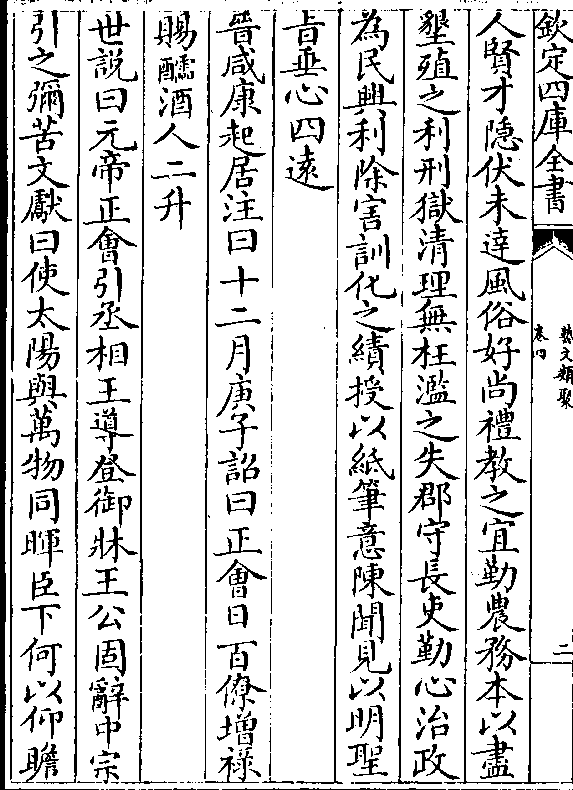 欽定四庫全書
藝文類聚
卷四
二
人賢才隱伏未達風俗好尚禮教之宜勤農務本以盡
墾殖之利刑獄清理無枉濫之失郡守長吏勤心治政
為民興利除害訓化之績授以紙筆意陳聞見以明聖
㫖垂心四逺
晉咸康起居注曰十二月庚子詔曰正會日百僚增禄
賜醹酒人二升
世説曰元帝正會引丞相王導登御牀王公固辭中宗
引之彌苦文獻曰使太陽與萬物同暉臣下何以仰瞻